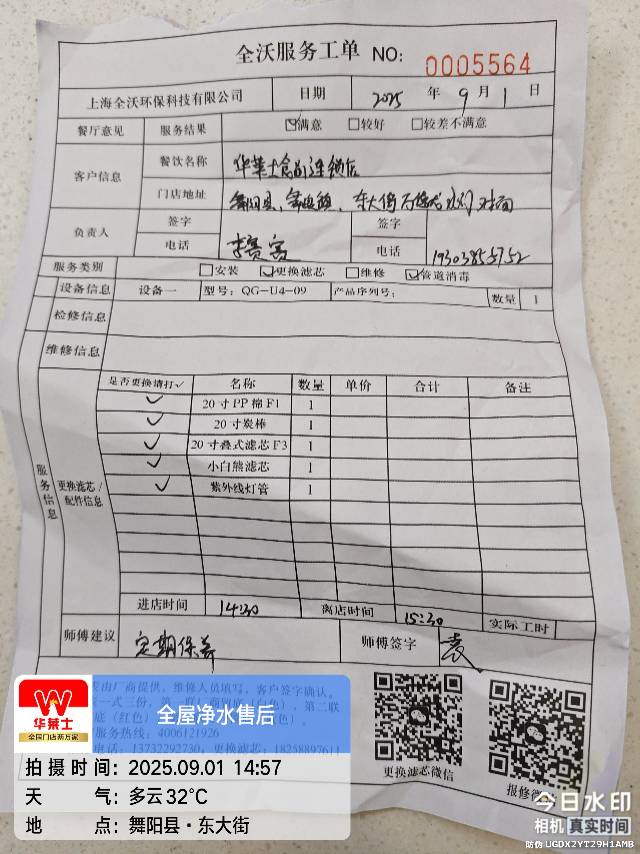 全沃服务工单 NO: 0005564
上海全沃环保科技有限公司 日期 2025 年 9 月 1 日
餐厅意见 服务结果 ☑满意 □较好 □较差不满意
客户信息 餐饮名称 华莱士食品连锁店
门店地址 舞阳县、舞泉镇、东大街 对面
负责人 签字 签字
电话 电话 19303855752
服务类别 □安装 ☑更换滤芯 □维修 ☑管道消毒
设备信息 设备一 型号: QG-U4-09 产品序列号: 数量 1
检修信息
维修信息
服务信息
更换滤芯/配件信息
是否更换请打✓ 名称 数量 单价 合计 备注
✓ 20寸PP棉F1 1
✓ 20寸炭棒 1
✓ 20寸叠式滤芯F3 1
✓ 小白熊滤芯 1
✓ 紫外线灯管 1
进店时间 14:30 离店时间 15:30 实际工时
师傅建议 定期保养 师傅签字 袁
表由厂商提供,维修人员填写,客户签字确认。
一式三份, 第二联
底(红色)
服务热线: 4006121926
电话: 13732292730; 更换滤芯: 18258897611
更换滤芯微信
报修微
华莱士
全国门店 万家
全屋净水售后
拍摄时间: 2025.09.01 14:57
天 气: 多云 32°C
地 点: 舞阳县·东大街
今日水印
相机 真实时间
防伪 UGDX2YT29H1AMB